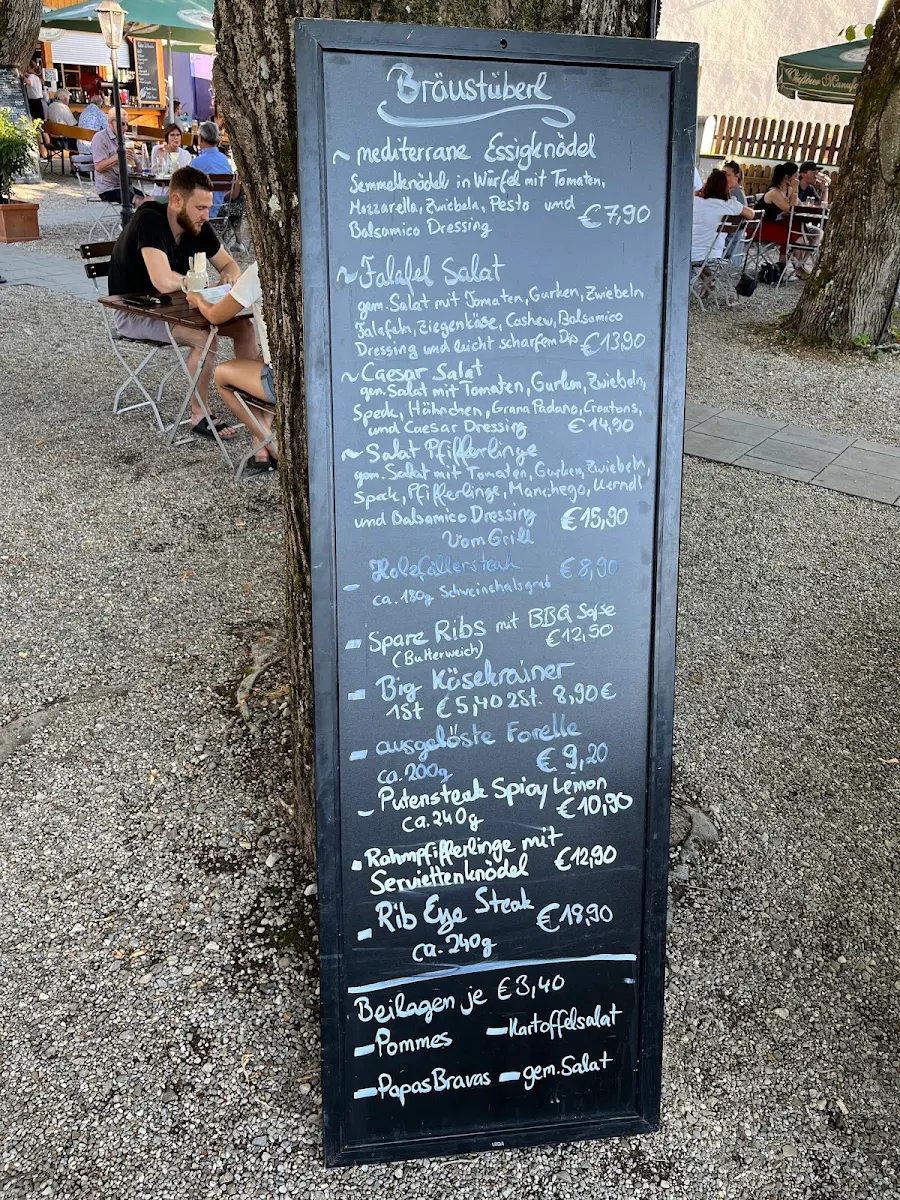 Bräustüberl
~ mediterrane Essigknödel
Semmelknödel in Würfel mit Tomaten,
Mozzarella, Zwiebeln, Pesto und
Balsamico Dressing €7,90
~ Falafel Salat
gem. Salat mit Tomaten, Gurken, Zwiebeln
Falafeln, Ziegenkäse, Cashew, Balsamico
Dressing und leicht scharfem Dip €13,90
~ Caesar Salat
gem. Salat mit Tomaten, Gurken, Zwiebeln,
Speck, Hähnchen, Grana Padano, Croutons,
und Caesar Dressing €14,90
~ Salat Pfifferlinge
gem. Salat mit Tomaten, Gurken, Zwiebeln,
Speck, Pfifferlinge, Manchego, Kerndl
und Balsamico Dressing €15,90
Vom Grill
- Holzfällersteak €8,90
ca. 180g Schweinehalsgrat
- Spare Ribs mit BBQ Soße
(Butterweich) €12,50
- Big Käsekrainer
1St €5,40 2St. 8,90€
- ausgelöste Forelle
ca. 200g €9,20
- Putensteak Spicy Lemon
ca. 240g €10,90
- Rahmpfifferlinge mit
Serviettenknödel €12,90
- Rib Eye Steak €18,90
ca. 240g
Beilagen je €3,40
- Pommes - Kartoffelsalat
- Papas Bravas - gem. Salat